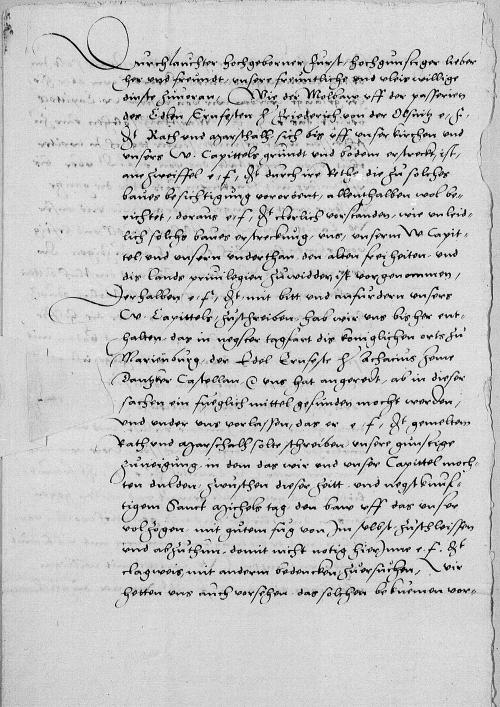 Durchlauchter hochgeborner Furst, hochgunstiger lieber
her und freundt, unsere freuntliche und vleis willige
dinste zuvoran, Wie der Molbaw uff der passerien
des Edlen Ernfesten h Friederich von der Olsnitz e. f.
Dt Rath und Marschalh sich bis uff unser kirchen und
unsers W. Capittels grundt und bodem erstreckt, ist,
an zweiffel e. f. Dt durch ire Rethe die zu solches
bawes besichtigung verordent, allenthalben wol be-
richtet, doraus e. f. Dt clerlich vorstanden, wie unleid-
lich solchs bawes erstreckung, uns, unserm W Capit-
tel und unsern underthan, den alten freiheiten und
dis lands privilegien zuwidder, ist vorgenommen,
Derhalben e. f. Dt mit bitt und anfurdern unsers
W. Capittels, zuschreiben, hab wir uns bisher ent-
halten, das in negster tagfart dis koniglichen orts zu
Marienburg, der Edel Ernfeste h Achacius Zeme
Dantzker Castellan @ uns hat angeredt, ab in dieser
sachen ein fueglich mittel gefunden mocht werden,
und under uns vorlassen, das er e. f. Dt gemeltem
Rath und Marschalh solte schreiben unsere gunstige
zuneigung, in dem das wir und unser Capittel moch-
ten dulden, zwuschen dieser zeitt und negst kunf-
tigem Sanct Michels tag, den baw uff das unser
volzogen, mit gutem fug von Im selbst zuschleissen
und abzuthun, domit nicht notig hier Inne e. f. Dt
clagweis mit anderm bedencken zuersuchen, Wir
hetten uns auch vorsehen, das solchen bekuemen vor-